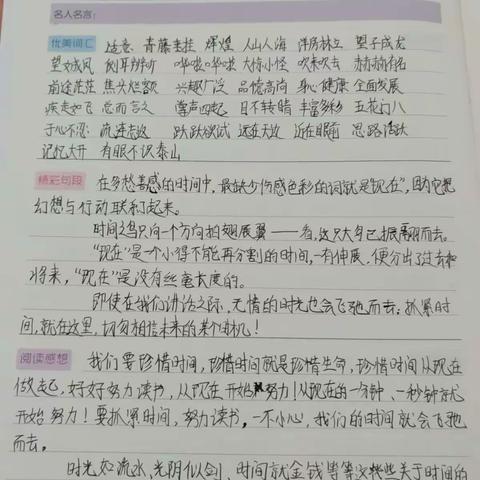 名人名言:
优美词汇 适意 青藤圭挂 辉煌 人山人海 洋房林立 望子成龙
望女成凤 侧耳辨听 哗啦哗啦 大惊小怪 吹来吹去 赫赫有名
前途茫茫 焦头烂额 兴趣广泛 品德高尚 身心健康 全面发展
疾走如飞 总而言之 掌声四起 目不转睛 丰富多彩 五花八门
于心不忍 流连忘返 跃跃欲试 远在天边 近在眼前 思路活跃
记忆大开 有眼不识泰山
精彩句段 在多愁善感的时间中,最缺少伤感色彩的词就是"现在",因为它把
幻想与行动联系起来。
时间之鸟只向一个方向拍翅展翼——看,这只大鸟已振翮而去。
"现在"是一个小得不能再分割的时间,一有伸展,便分出了过去和
将来,"现在"是没有丝毫长度的。
即使在我们讲话之际,无情的时光也会飞驰而去:抓紧时
间,就在这里,切勿相信未来的某个时机!
阅读感想 我们要珍惜时间,珍惜时间就是珍惜生命,珍惜时间从现在
做起,好好努力读书,从现在开始努力!从现在的一分钟、一秒钟就
开始努力!要抓紧时间,努力读书,一不小心,我们的时间就会飞驰
而去。
时光如流水,光阴似剑,时间就金钱等等这些些关于时间的